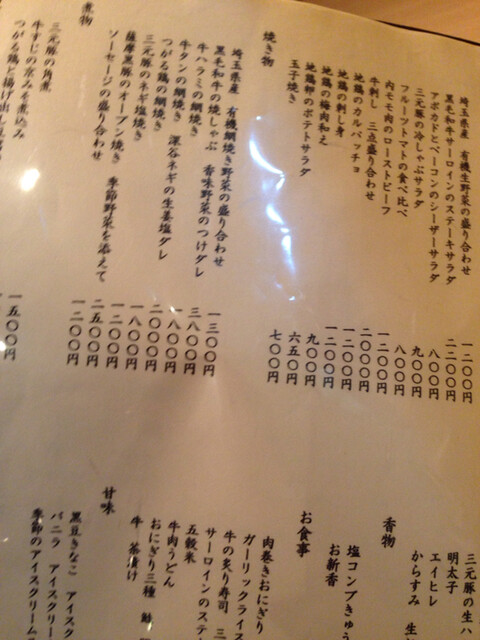 埼玉県産 有機生野菜の盛り合わせ 一二〇〇円
黒毛和牛サーロインのステーキサラダ 二二〇〇円
アボカドとベーコンのシーザーサラダ 八〇〇円
三元豚の冷しゃぶサラダ 九〇〇円
フルーツトマトの食べ比べ 八〇〇円
内モモ肉のローストビーフ 一二〇〇円
牛刺し 三点盛り合わせ 二〇〇〇円
地鶏のカルパッチョ 一二〇〇円
地鶏の刺し身 一二〇〇円
地鶏の梅肉和え 九〇〇円
地鶏卵のポテトサラダ 六五〇円
玉子焼き 七〇〇円
焼き物
埼玉県産 有機網焼き野菜の盛り合わせ 一三〇〇円
黒毛和牛の焼しゃぶ 香味野菜のつけダレ 三八〇〇円
牛ハラミの網焼き 一八〇〇円
牛タンの網焼き 深谷ネギの生姜塩ダレ 二〇〇〇円
つがる鶏の網焼き 一八〇〇円
三元豚のネギ塩焼き 一二〇〇円
薩摩黒豚のオーブン焼き 季節野菜を添えて 二五〇〇円
ソーセージの盛り合わせ 一二〇〇円
煮物
三元豚の角煮
牛すじの京みそ煮込み
つがる鶏と揚げ出し 一五〇〇円
三元豚の生ハ
明太子
エイヒレ
からすみ 生
香物
塩コンブきゅう
お新香
お食事
肉巻きおにぎり
ガーリックライス
牛の炙り寿司 三
サーロインのステ
五穀米
牛肉うどん
おにぎり三種 鮭
牛 茶漬け
甘味
黒豆きなこ アイスク
バニラ アイスクリー
季節のアイスクリーム